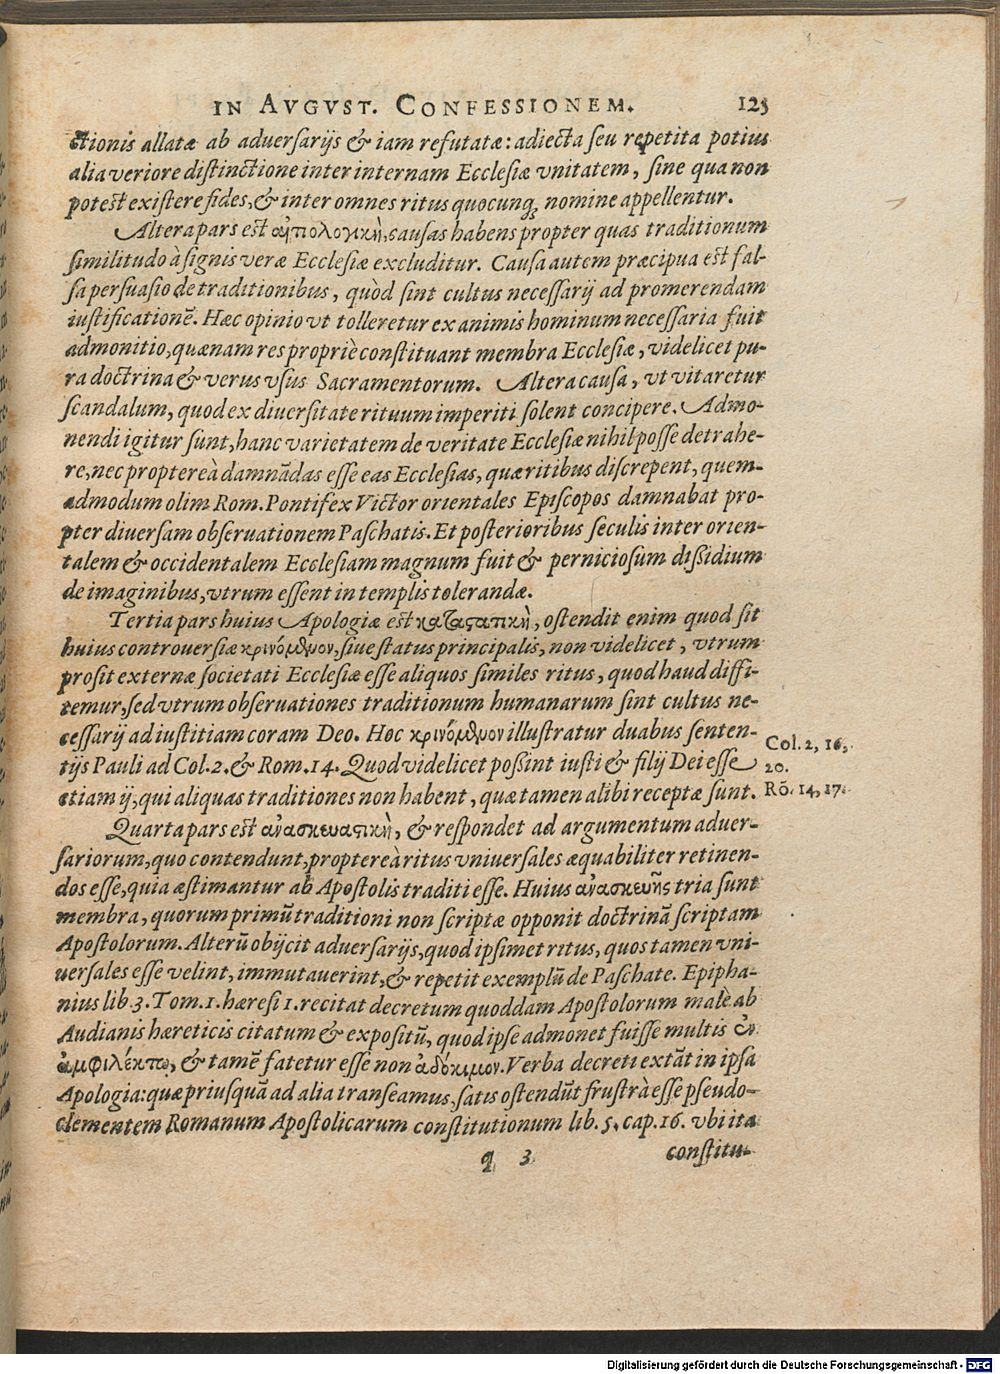 IN AVGVST. CONFESSIONEM. 125
ctionis allatæ ab aduersarijs & iam refutatæ: adiecta seu repetita potius
alia veriore distinctione inter internam Ecclesiæ vnitatem, sine qua non
potest existere fides, & inter omnes ritus quocunq; nomine appellentur.
Altera pars est ἀπολογικὴ, causas habens propter quas traditionum
similitudo à signis veræ Ecclesiæ excluditur. Causa autem præcipua est fal-
sa persuasio de traditionibus, quòd sint cultus necessarij ad promerendam
iustificationē. Hæc opinio vt tolleretur ex animis hominum necessaria fuit
admonitio, quænam res propriè constituant membra Ecclesiæ, videlicet pu-
ra doctrina & verus vsus Sacramentorum. Altera causa, vt vitaretur
scandalum, quod ex diuersitate rituum imperiti solent concipere. Admo-
nendi igitur sunt, hanc varietatem de veritate Ecclesiæ nihil posse detrahe-
re, nec proptereà damnādas esse eas Ecclesias, quæ ritibus discrepent, quem-
admodum olim Rom. Pontifex Victor orientales Episcopos damnabat pro-
pter diuersam obseruationem Paschatis. Et posterioribus seculis inter orien-
talem & occidentalem Ecclesiam magnum fuit & perniciosum dissidium
de imaginibus, vtrum essent in templis tolerandæ.
Tertia pars huius Apologiæ est καταστατικὴ, ostendit enim quod sit
huius controuersiæ κρινόμενον, siue status principalis, non videlicet, vtrum
prosit externæ societati Ecclesiæ esse aliquos similes ritus, quod haud diffi-
temur, sed vtrum obseruationes traditionum humanarum sint cultus ne-
cessarij ad iustitiam coram Deo. Hoc κρινόμενον illustratur duabus senten-
tijs Pauli ad Col. 2. & Rom. 14. Quod videlicet possint iusti & filij Dei esse
etiam ij, qui aliquas traditiones non habent, quæ tamen alibi receptæ sunt.
Col. 2, 16,
20.
Rō. 14, 17.
Quarta pars est ἀνασκευατικὴ, & respondet ad argumentum aduer-
sariorum, quo contendunt, proptereà ritus vniuersales æquabiliter retinen-
dos esse, quia æstimantur ab Apostolis traditi esse. Huius ἀνασκευῆς tria sunt
membra, quorum primū traditioni non scriptæ opponit doctrinā scriptam
Apostolorum. Alterū obijcit aduersarijs, quod ipsimet ritus, quos tamen vni-
uersales esse velint, immutauerint, & repetit exemplū de Paschate. Epipha-
nius lib. 3. Tom. 1. hæresi 1. recitat decretum quoddam Apostolorum malè ab
Audianis hæreticis citatum & expositū, quod ipse admonet fuisse multis ἐν
ἀμφιλέκτῳ, & tamē fatetur esse non ἀδόκιμον. Verba decreti extāt in ipsa
Apologia: quæ priusquā ad alia transeamus, satis ostendūt frustrà esse pseudo-
clementem Romanum Apostolicarum constitutionum lib. 5. cap. 16. vbi ita
q 3 constitu-
Digitalisierung gefördert durch die Deutsche Forschungsgemeinschaft - DFG